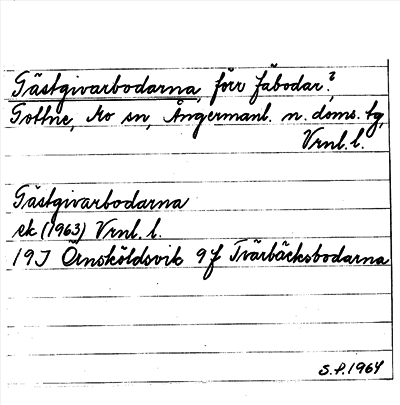 Gästgivarbodarna, förr fäbodar?,
Gottne, Mo sn, Ångermanl. n. doms. tg,
Vrnl. l.
Gästgivarbodarna
ek (1963) Vrnl. l.
19J Örnsköldsvik 9f Tvärbäcksbodarna
S.P. 1964